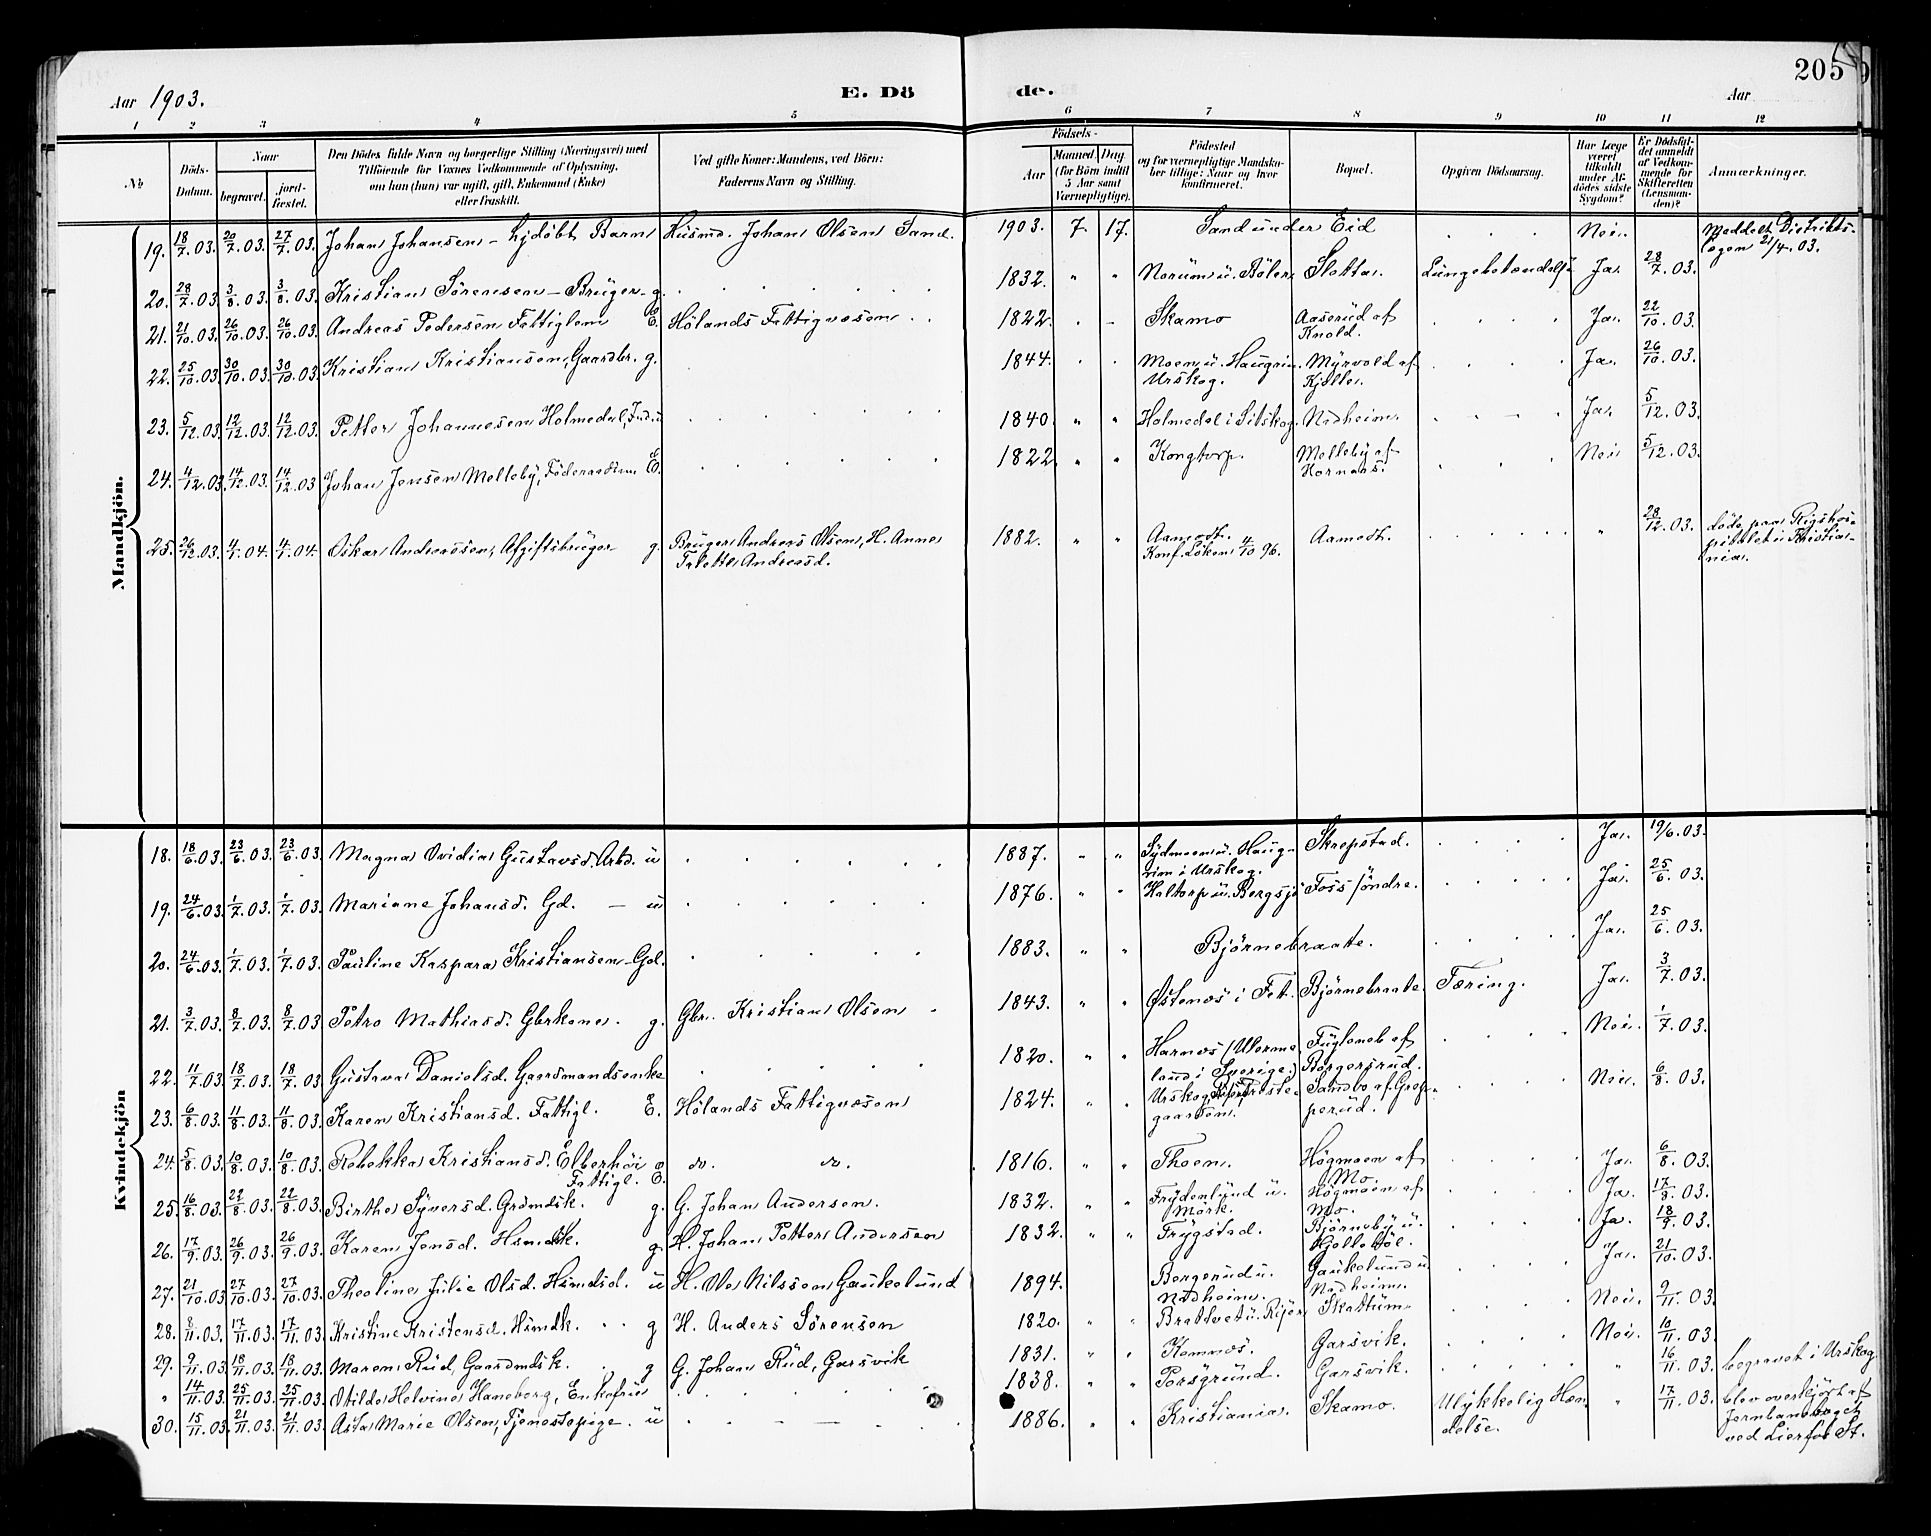 Aar 1903.
E. Dö de.
Aar
205
1 2 3 4 5 6 7 8 9 10 11 12
№
Döds-Datum.
Naar
begravet.
jord-fæstet.
Den Dödes fulde Navn og borgerlige Stilling (Næringsvei) med
Tilföiende for Voxnes Vedkommende af Oplysning,
om han (hun) var ugift, gift, Enkemand (Enke)
eller fraskilt.
Ved gifte Koner: Mandens, ved Börn:
Faderens Navn og Stilling.
Födsels-
Aar
Maaned. Dag.
(for Börn indtil
5 Aar samt
Værnepligtige).
Födested
og for værnepligtige Mandska-
ber tillige: Naar og hvor
konfirmeret.
Bopæl.
Opgiven Dödsaarsag.
Har Læge
været
tilkaldt
under Af-
dödes sidste
Sygdom?
Er Dödsfal-
det anmeldt
af Vedkom-
mende for
Skifteretten
(Lensman-
den)?
Anmærkninger.
Mandkjön.
19. 18/7.03. 20/7.03. 27/7.03. Johan Johansen – hjdöbt Barn Husmd. Johan Olsen Sand. 1903. 7. 17. Sand under Eid Nei. Meddelt Distrikts-
lægen 21/7.03.
20. 28/7.03. 3/8.03. 3/8.03. Kristian Sörensen – Brüger g. 1832. " " Norüm ü. Böler Slotta. Lungebetændelse Ja. 28/7.03.
21. 21/10.03. 26/10.03. 26/10.03. Andreas Pedersen Fattiglem E. Hölands Fattigvæsen 1822. Skamo Aaserüd af
Knold. Ja. 22/10.03.
22. 25/10.03. 30/10.03. 30/10.03. Kristian Kristiansen, Gaardbr. g. 1844. Moen ü. Haugrim
Urskog. Myrvold af
Kjelle. Ja. 26/10.03.
23. 5/12.03. 12/12.03. 12/12.03. Petter Johannesen Holmedal, Ind. ü 1840 " " Holmedal i Sitskog. Nadheim. Ja. 5/12.03.
24. 4/12.03. 14/12.03. 14/12.03 Johan Jensen Melleby, Föderaadsm E. 1822 " " Kongtorp. Melleby af
Hornaas. Nei 5/12.03.
25. 26/12.03. 4/1.04. 4/1.04. Oskar Andreassen, Afgiftsbrüger g. Brüger Andreas Olsen, H. Anne
Talette Andreasd. 1882. " " Aamodt.
Konf. Löken 4/10 96. Aamodt. " 28/12.03. döde paa Rigshos-
pitalet i Kristia-
nia.
Kvindekjön
18. 18/6.03. 23/6.03. 23/6.03. Magna Ovidia Gustavsd. Arbd. ü 1887. " " Sydmoen ü. Haug-
rim i Urskog. Skrepstad. Ja. 19/6.03.
19. 24/6.03. 1/7.03. 1/7.03. Mariane Johansd. Gd. – ü 1876. " " Haltorp ü. Bergsjö Foss söndre. Ja. 25/6.03.
20. 24/6.03. 1/7.03. 1/7.03. Pauline Kaspara Kristiansen – Gd. 1883. " " Björnebraate. Ja. 25/6.03.
21. 3/7.03. 8/7.03. 8/7.03 Petro Mathiasd. Gbrkone. g. Gbr. Kristian Olsen 1843. " " Östenæs i Fet. Björnebraate. Tæring. Ja. 3/7.03.
22. 11/7.03. 18/7.03. 18/7.03 Gustava Danielsd. Gaardmandsenke 1820. " " Harnæs (Værme
land i Sverige.) Fugleneb af
Borgersrud. Nei. 1/7.03.
23. 6/8.03. 11/8.03. 11/8.03. Karen Kristiansd. Fattigl. E. Hölands Fattigvæsen 1824. " " Urskog Præste-
gaarden. Sandbo af Grep-
perüd. Nei. 6/8.03.
24. 5/8.03. 10/8.03. 10/8.03. Rebekka Kristiansd. Elberhöi
Fattigl. E. do. do. 1816. " " Thoen. Högmoen af
Mo. Ja. 6/8.03.
25. 16/8.03. 22/8.03. 22/8.03. Birthe Syversd. Grdmdsk. g. G. Johan Andersen. 1832. " " Frydenlünd ü.
Mörk. Högmoen af
Mo. Ja. 17/8.03.
26. 17/9.03. 26/9.03. 26/9.03. Karen Jensd. Hsmdsk. g. H. Johan Petter Andersen 1832. " " Trygstad. Björneby ü.
Kjelleböl. Ja. 18/9.03.
27. 21/10.03. 27/10.03. 27/10.03. Theoline Julie Olsd. Hsmdsd. ü H. Ole Nilssen Gaukelund 1894. Borgerud ü.
Nadheim. Gaukelund ü
Nadheim. Ja. 21/10.03.
28. 8/11.03. 17/11.03. 17/11.03. Kristine Kristensd. Hsmdk. g H. Anders Sörensen 1820. " " Brattvet ü. Rijer Skattüm. Nei. 9/11.03.
29. 9/11.03. 18/11.03. 18/11.03. Maren Rüd, Gaardmdsk. g G. Johan Rüd, Garsvik 1831. " " Komnæs. Garsvik. Nei. 10/11.03.
" 14/11.03. 25/11.03. 25/11.03. Otilde Helvine Haneborg, Enkefrüe 1838. " " Porsgründ. Garsvik. " 16/11.03. begravet i Urskog.
30. 15/11.03. 21/11.03. 21/11.03. Asta Marie Olsen, Tjenestepige. ü 1886. " " Kristiania. Skamo. Ulykkelig Hæn
delse. " 17/11.03. blev overkjört af
Jernbanetoget
ved Lierfos St.